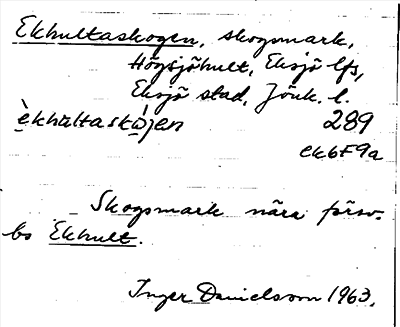 Ekhultaskogen, skogsmark,
Högsjöhult, Eksjö lfs,
Eksjö stad, Jönk. l.
èkhultaskòjen 289
ek6F9a
Skogsmark nära försv.
bo Ekhult.
Inger Danielsson 1963.